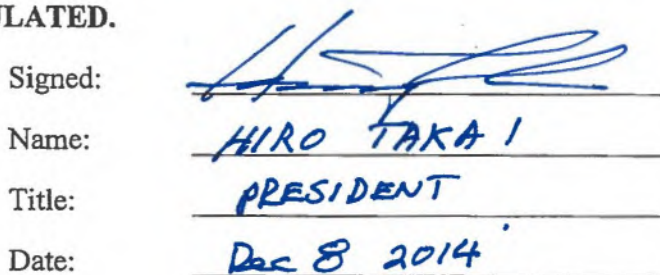 ULATED.
Signed:
Name: HIRO TAKAI
Title: PRESIDENT
Date: Dec 8 2014